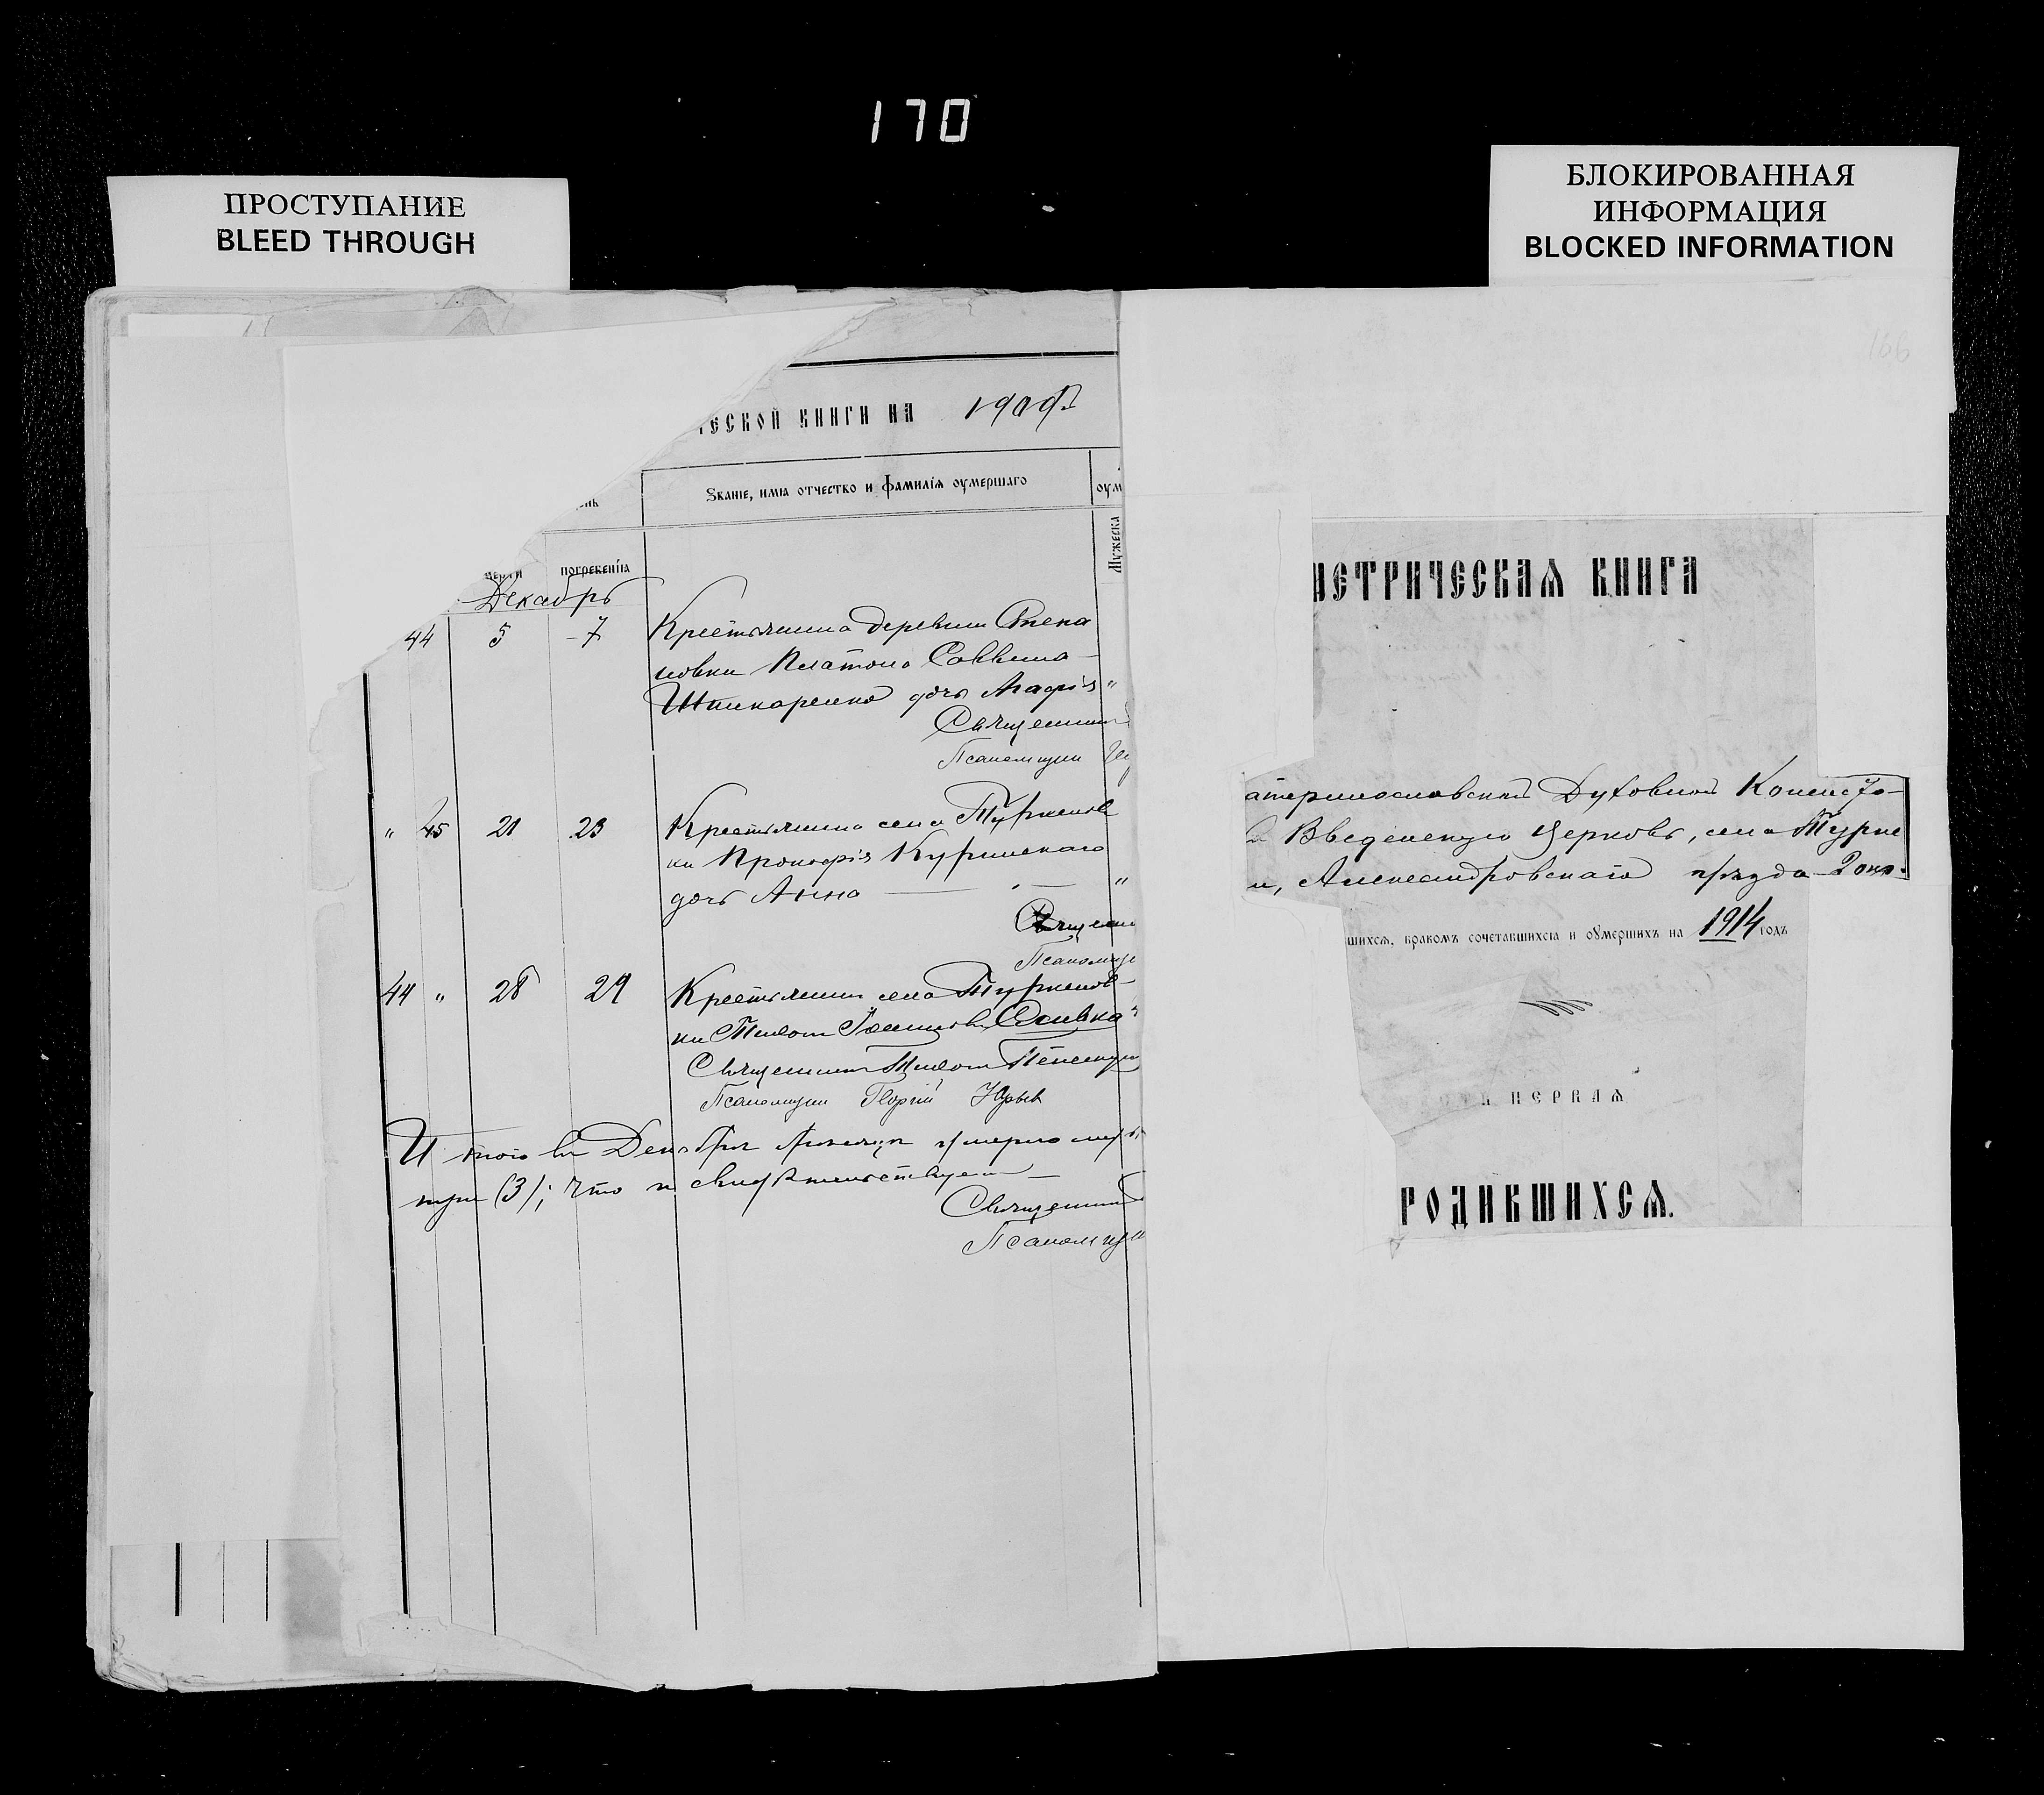 170
ПРОСТУПАНИЕ
BLEED THROUGH
БЛОКИРОВАННАЯ
ИНФОРМАЦИЯ
BLOCKED INFORMATION
166
ЕСКОЙ КНИГИ НА 1909
Званіе, имѧ отчество и фамилія оумершаго
оум
Мужеска
погребенія
Декабрь
44 5 7 Крестьянина деревни Степа
новки Платона Саввина
дочь Агафія "
Священник
Псаломщик
" 45 21 23 Крестьянина села Туркенов
ки Прокофія Куринскаго
дочь Анна "
Священ
Псаломще
44 " 28 29 Крестьянин села Туркенов-
ки Тимофей
Священник
Псаломщик Георгій Юрьев
Итого в Декабре умерло
(3); что и свидетельствуем
Священник
Псаломщик
МЕТРИЧЕСКАѦ КНИГА
атеринославской Духовной Консисто-
Введенскую Церковь, села Турке
и, Александровскаго уѣзда 2 окр.
шихсѧ, бракомъ сочетавшихсѧ и оумершихъ на 1914 годъ
ПЕРВАѦ
РОДИВШИХСѦ.